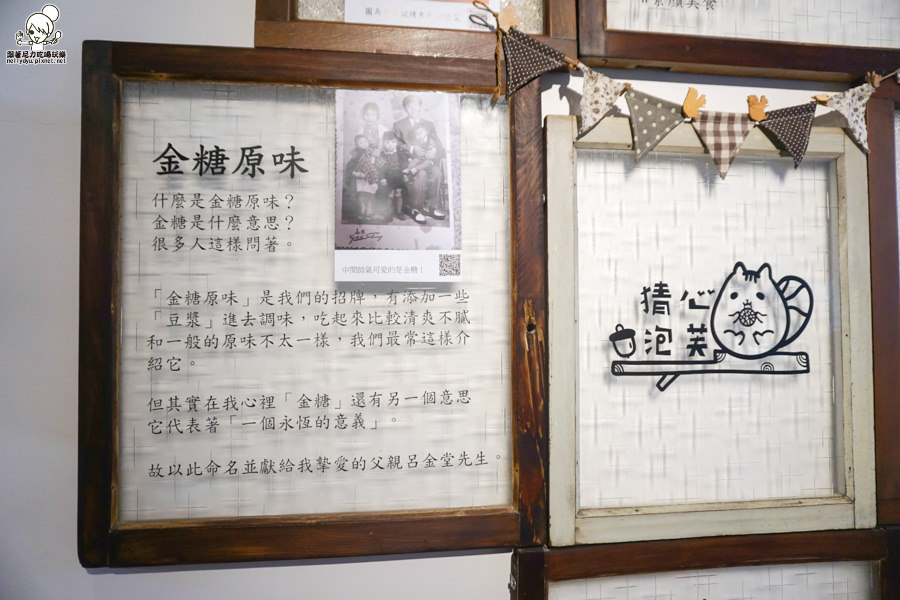 跟著尼力吃喝玩樂
nellydyu.pixnet.net
素顏美食
金糖原味
什麼是金糖原味？
金糖是什麼意思？
很多人這樣問著。
中間帥氣可愛的是金糖！
「金糖原味」是我們的招牌，有添加一些
「豆漿」進去調味，吃起來比較清爽不膩
和一般的原味不太一樣，我們最常這樣介
紹它。
但其實在我心裡「金糖」還有另一個意思
它代表著「一個永恆的意義」。
故以此命名並獻給我摯愛的父親呂金堂先生。
猜心
泡芙